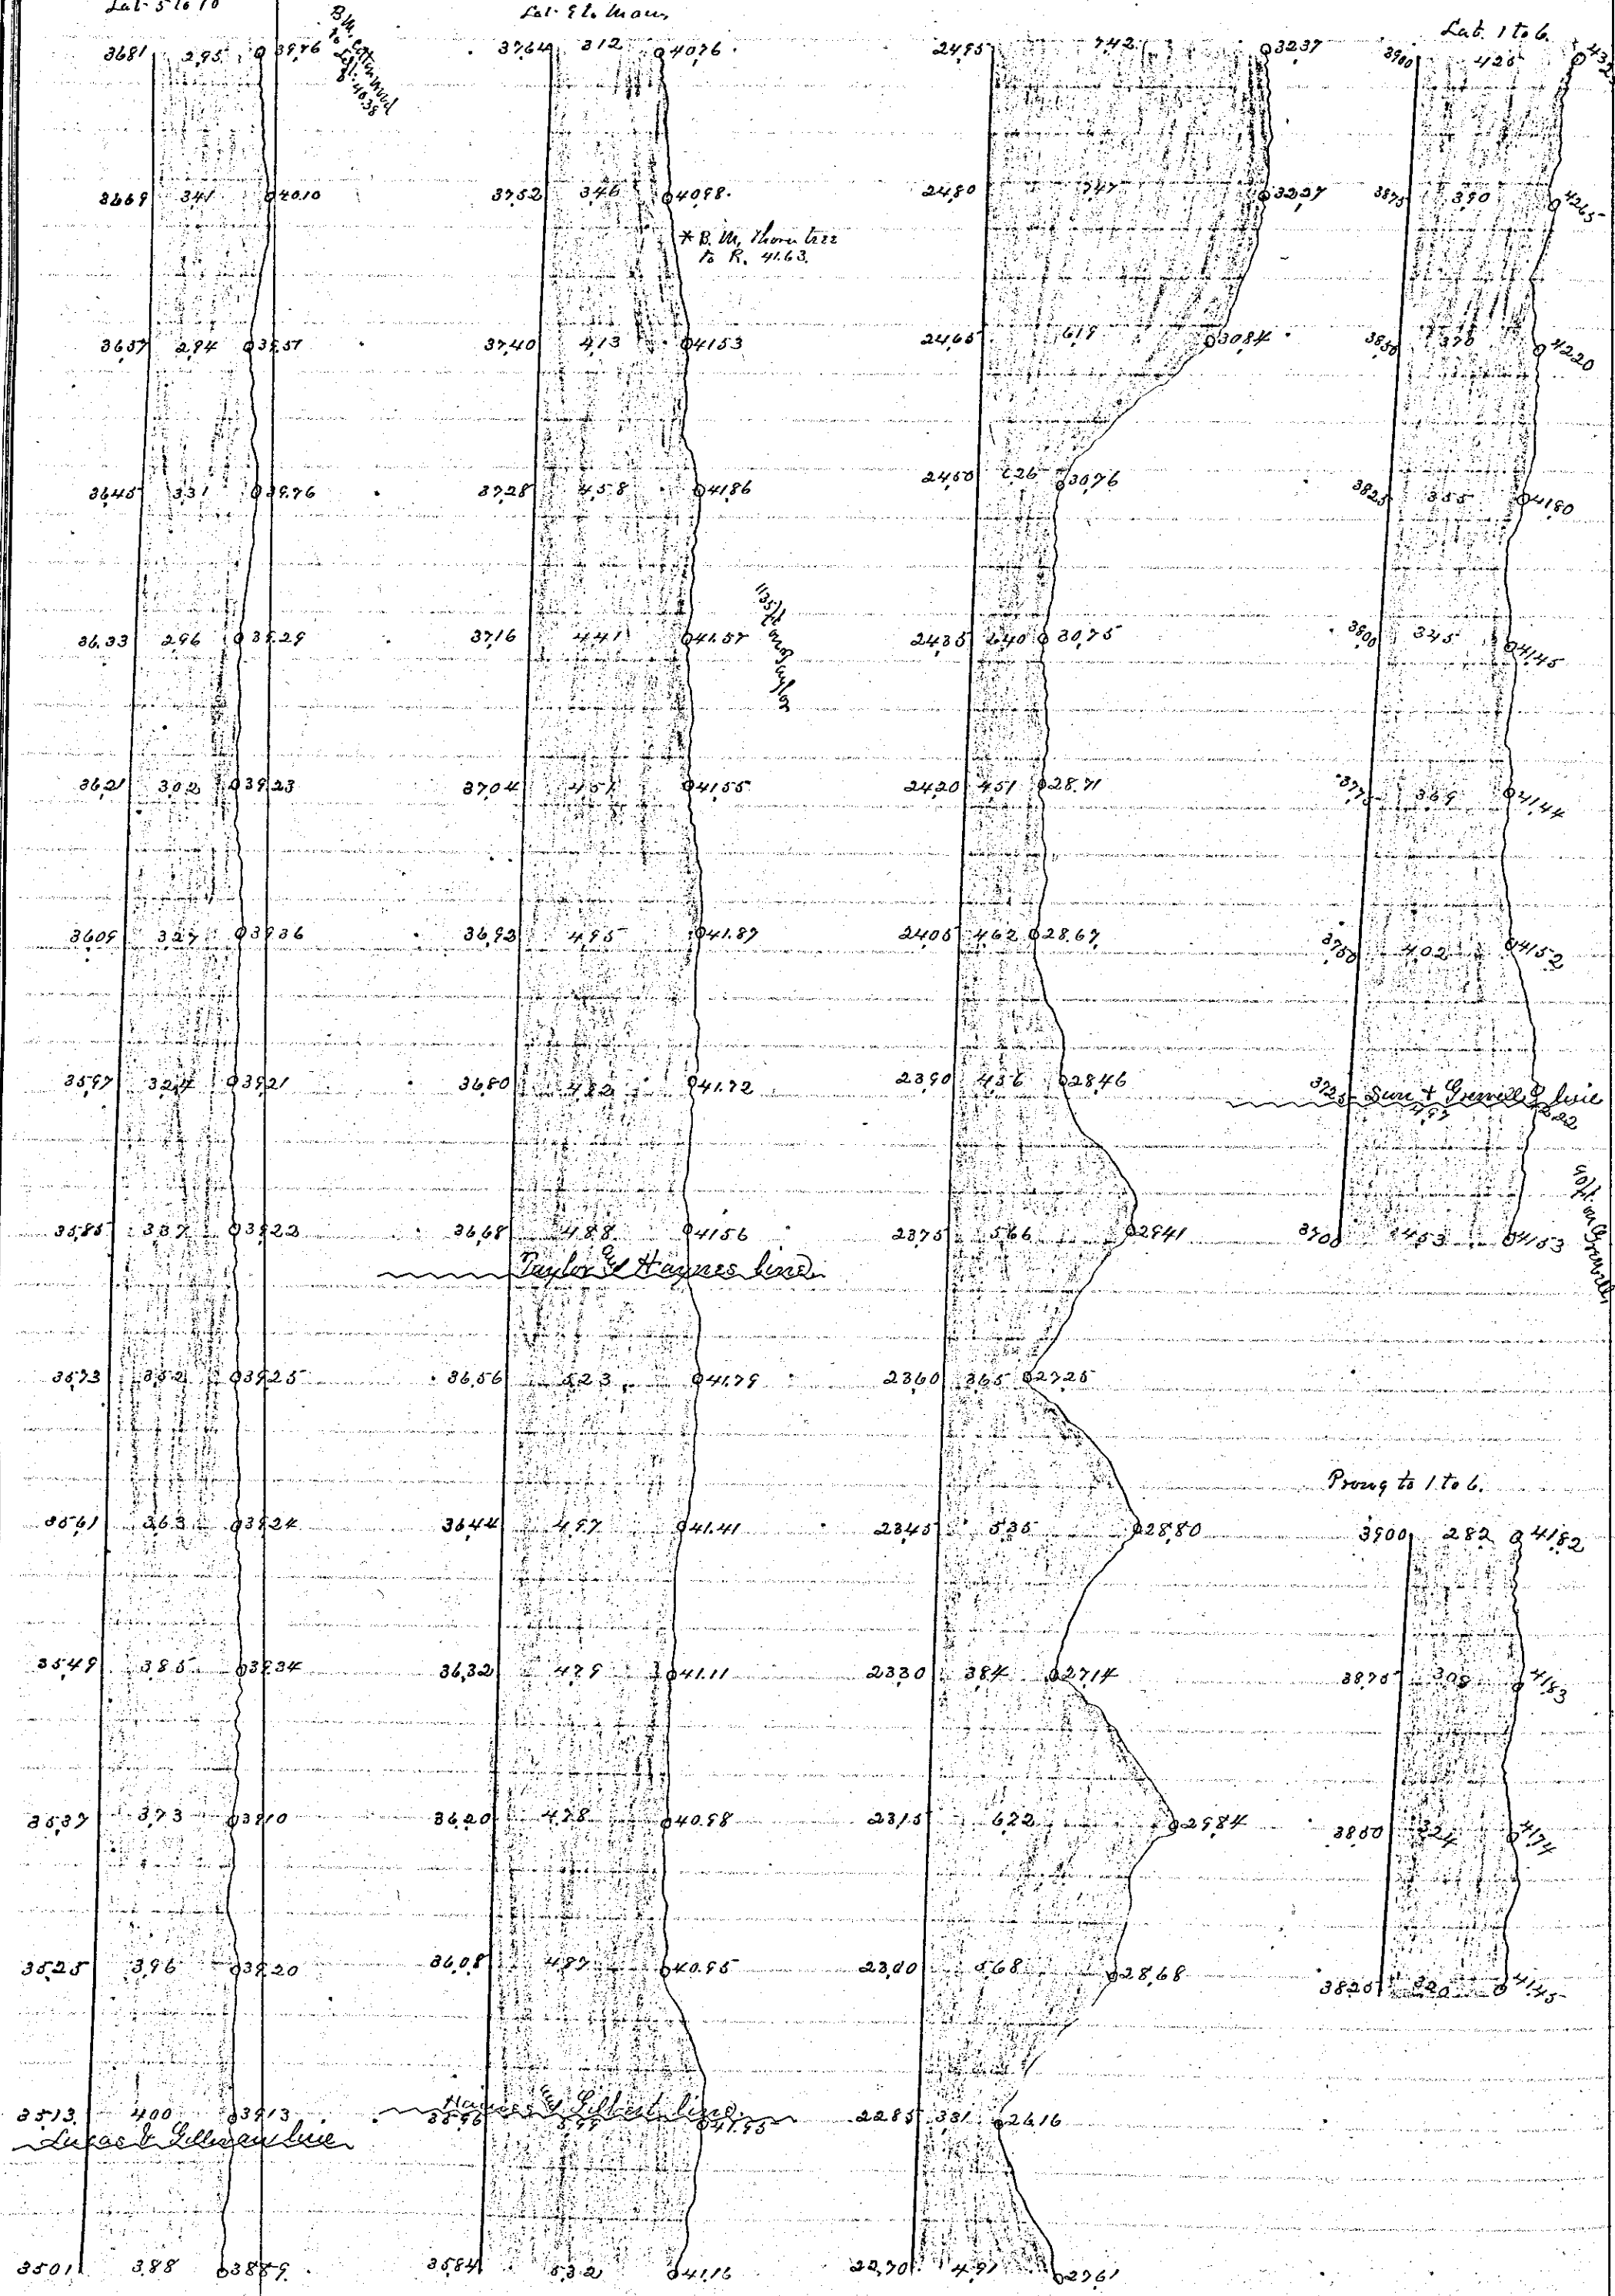 Lat. 5 to 10
3681 295 3976
3669 341 4010
3657 294 3951
3645 331 3976
36.33 296 3929
3621 302 3923
3609 327 3936
3597 324 3921
3585 337 3922
3573 352 3925
3561 363 3924
3549 385 3934
3537 373 3910
3525 396 3920
3513 400 3913
Lucas & Gillman line
3501 388 3889
3764 312 4076
3752 346 4098
* B. M. Thorn tree
to R. 41.63.
3740 413 4153
3728 458 4186
3716 441 41.57
3704 451 4155
3692 495 41.87
3680 492 41.72
3668 488 4156
Taylor & Haynes line
3656 523 41.79
3644 497 41.41
3632 479 41.11
3620 478 40.98
3608 487 40.95
Haynes & Gilbert line
3596
3584 532 41.16
2495 742 3237
2480 747 3227
2465 619 3084
2450 626 3076
2435 640 3075
2420 451 28.71
2405 462 28.67
2390 456 2846
2375 566 2941
2360 365 2725
2345 535 2880
2330 384 2714
2315 622 2984
2300 568 2868
2285 331 2616
2270 491 2761
Lat. 1 to 6
3900 425
3875 390 4265
3850 370 4220
3825 355 4180
3800 345 4145
3775 369 4144
3750 402 4152
3725 line
3700 453 4153
Prong to 1 to 6.
3900 282 4182
3875 308 4183
3850 324 4174
3825 320 4145